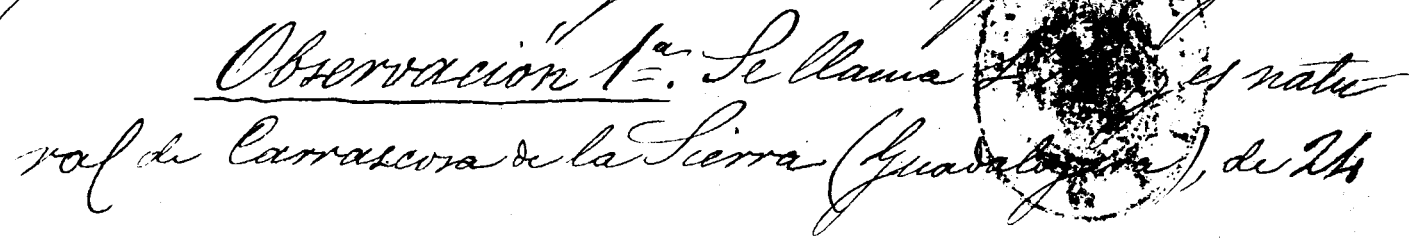 Observación 1ª. Se llama es natu-
ral de Carrascosa de la Sierra (Guadalajara), de 24